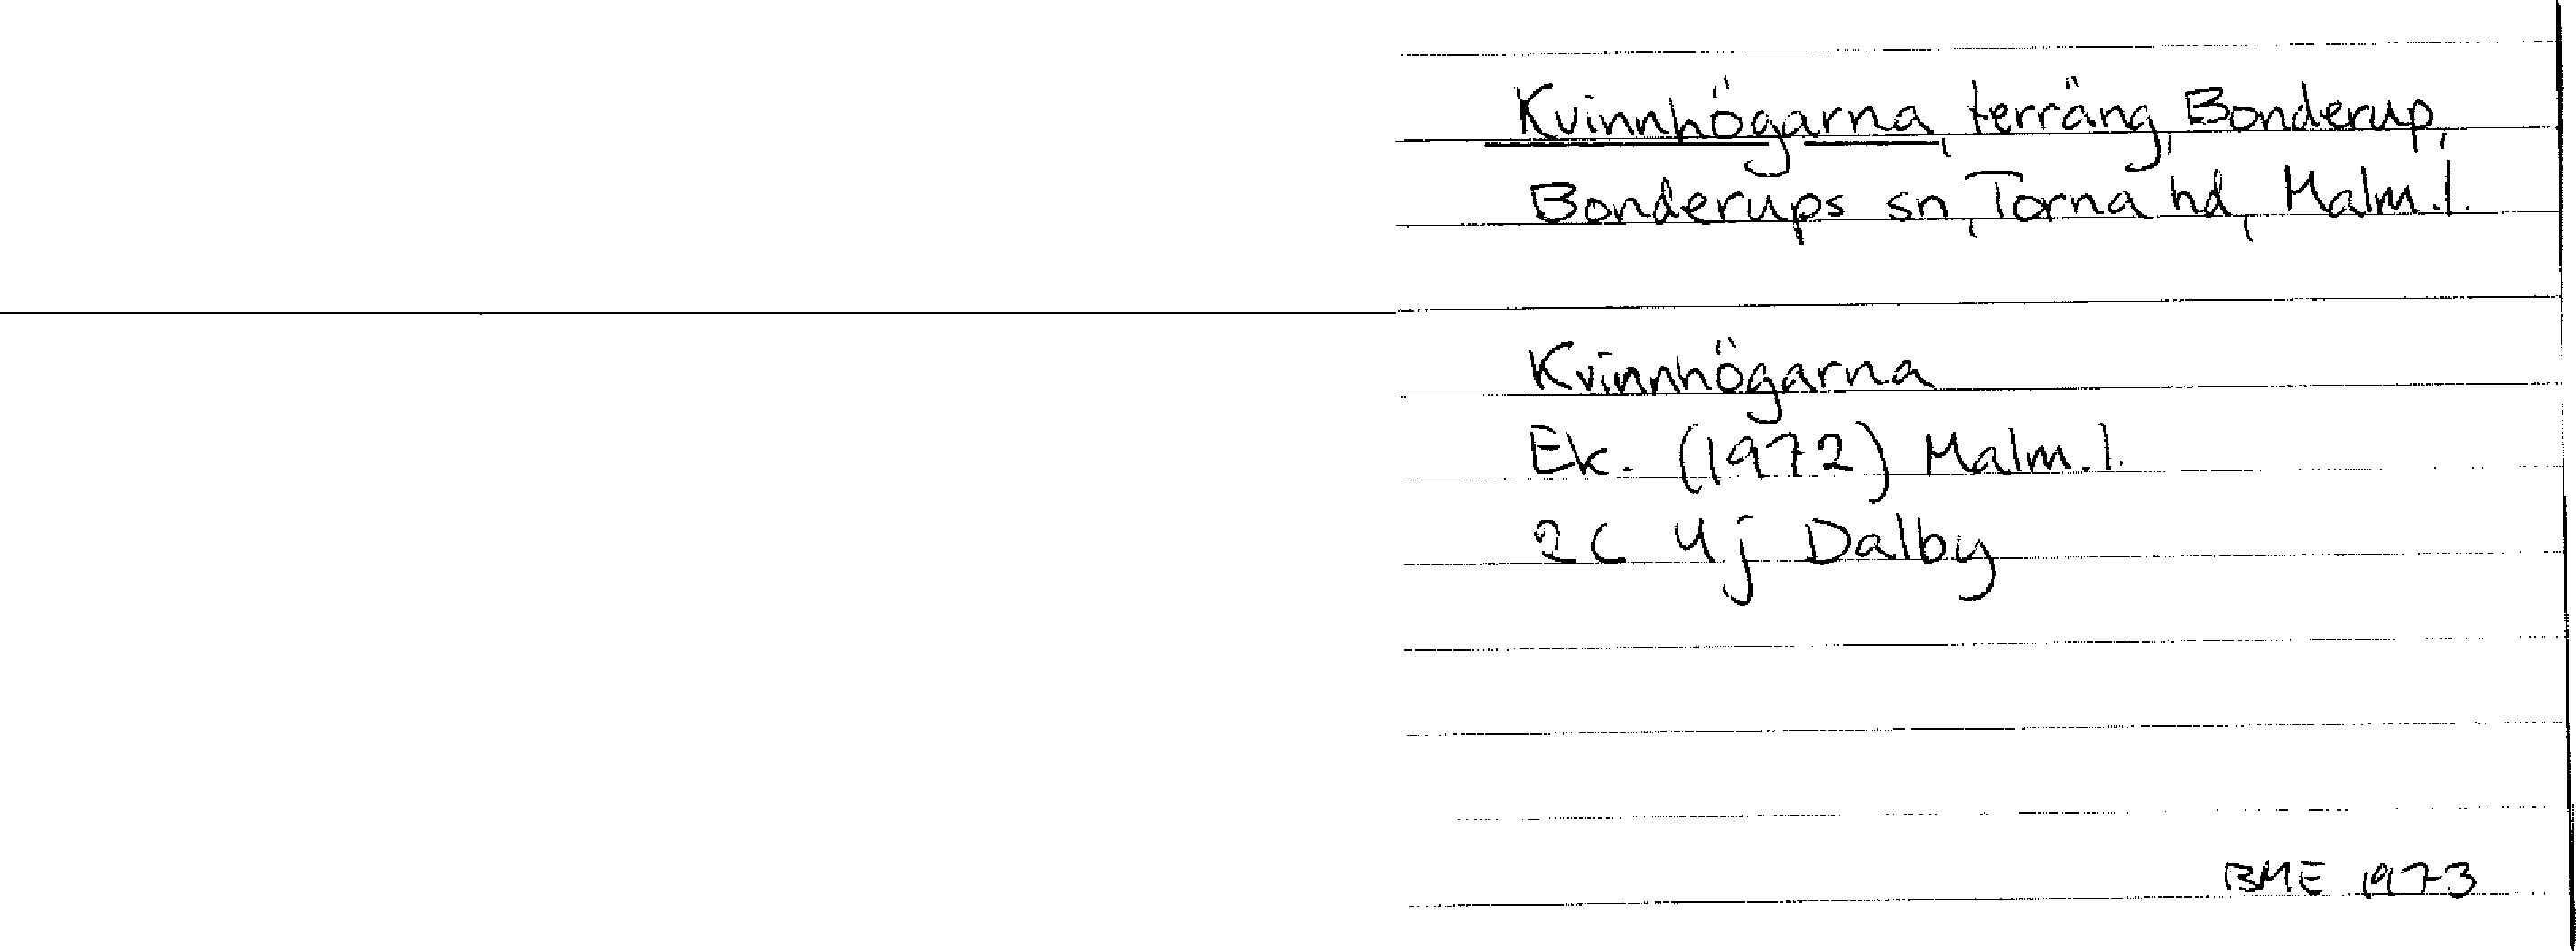 Kvinnhögarna, terräng, Bonderup,
Bonderups sn, Torna hd, Malm. l.
Kvinnhögarna
Ek. (1972) Malm. l.
2C 4j Dalby
BME 1973